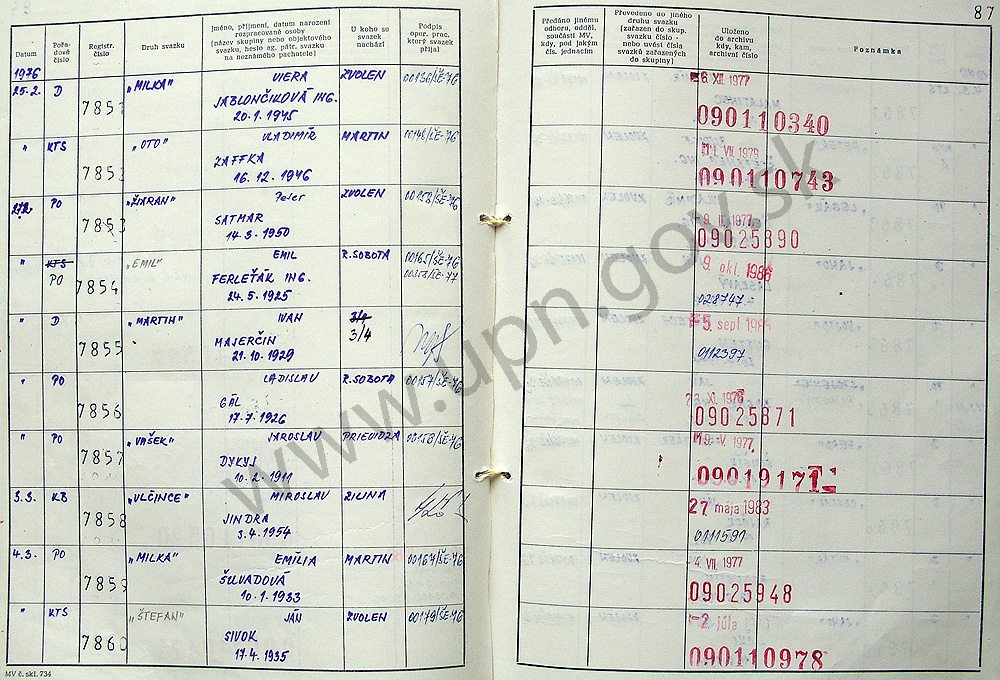 87
Datum
Pořadové číslo
Registr. číslo
Druh svazku
Jméno, příjmení, datum narození
rozpracované osoby
(název skupiny nebo objektového
svazku, heslo ag. pátr. svazku
na neznámého pachatele)
U koho se
svazek
nachází
Podpis
oper. prac.
který svazek
přijal
Předáno jinému
odboru, odděl.
součásti MV,
kdy, pod jakým
čís. jednacím
Převedeno do jiného
druhu svazku
(zařazen do skup.
svazku číslo -
nebo uvést čísla
svazků zařazených
do skupiny)
Uloženo
do archivu
kdy, kam,
archivní číslo
Poznámka
1976
25.2. D 7851 „MILKA" VIERA ZVOLEN 00136/ŠE-76
JABLONČIKOVÁ ING.
20.1.1945
XII. 1977
090110340
" KTS 7852 „OTO" VLADIMÍR MARTIN 00148/ŠE-76
ZAFFKA
16.12.1946
VII. 1979
090110743
PO 7853 „ŽIARAN" Peter ZVOLEN 00158/ŠE-76
SATMAR
14.3.1950
1977
09025890
" KTS 7854 „EMIL" EMIL R.SOBOTA 00165/ŠE-76
PO FERLEŤÁK ING.
24.5.1925
9 okl. 1986
028747
" D 7855 „MARTIN" IVAN 3/4
MAJERČIN
21.10.1929
5. sept
0112397
" PO 7856 LADISLAV R.SOBOTA 00157/ŠE-76
GÁL
17.7.1926
XI. 1976
09025871
" PO 7857 „VAŠEK" JAROSLAV PRIEVIDZA 00153/ŠE-76
DYKYJ
10.2.1911
V. 1977
09019171
3.3. KB 7858 „VLČINCE" MIROSLAV ŽILINA
JINDRA
3.4.1954
27 mája 1983
0111591
4.3. PO 7859 „MILKA" EMÍLIA MARTIN 00167/ŠE-76
ŠUVADOVÁ
10.1.1933
4. VII. 1977
09025948
" KTS 7860 „ŠTEFAN" JÁN ZVOLEN 00179/ŠE-76
SIVOK
17.4.1935
2. júla
090110978
MV č. skl. 734
www.upn.gov.sk